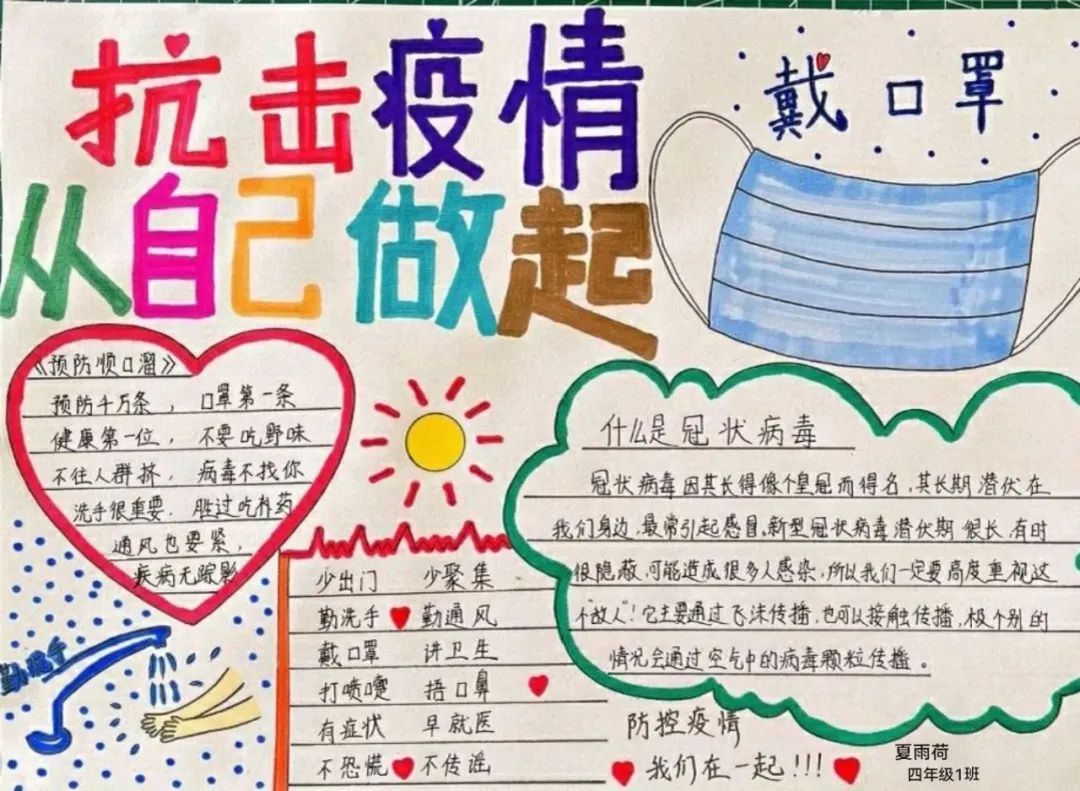 抗击疫情
从自己做起
戴口罩
《预防顺口溜》
预防千万条，口罩第一条
健康第一位，不要吃野味
不往人群挤，病毒不找你
洗手很重要，胜过吃补药
通风也要紧，
疾病无踪影
勤洗手
少出门 少聚集
勤洗手 勤通风
戴口罩 讲卫生
打喷嚏 捂口鼻
有症状 早就医
不恐慌 不传谣
什么是冠状病毒
冠状病毒因其长得像个皇冠而得名，其长期潜伏在
我们身边，最常引起感冒，新型冠状病毒潜伏期很长，有时
很隐蔽，可能造成很多人感染，所以我们一定要高度重视这
个"敌人"！它主要通过飞沫传播，也可以接触传播，极个别的
情况会通过空气中的病毒颗粒传播。
防控疫情
我们在一起!!!
夏雨荷
四年级1班